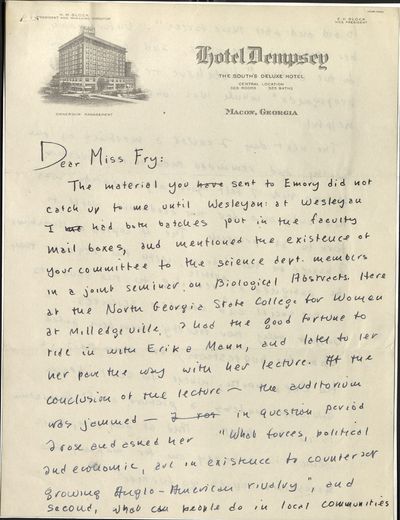 H. M. BLOCK
PRESIDENT AND MANAGING DIRECTOR
E. H. BLOCK
VICE PRESIDENT
Hotel Dempsey
THE SOUTH'S DELUXE HOTEL
CENTRAL LOCATION
ROOMS BATHS
MACON, GEORGIA
OWNERSHIP MANAGEMENT
Dear Miss Fry:
The material you have sent to Emory did not
catch up to me until Wesleyan: at Wesleyan
I had both batches put in the faculty
mail boxes, and mentioned the existence of
your committee to the science dept. members
in a joint seminar on Biological Abstracts. Here
at the North Georgia State College for Women
at Milledgeville, I had the good fortune to
ride in with Erika Mann, and later to let
her pave the way with her lecture. At the
conclusion of the lecture — the auditorium
was jammed — in question period
I rose and asked her "What forces, political
and economic, are in existence to counteract
growing Anglo-American rivalry", and
second, what can people do in local communities